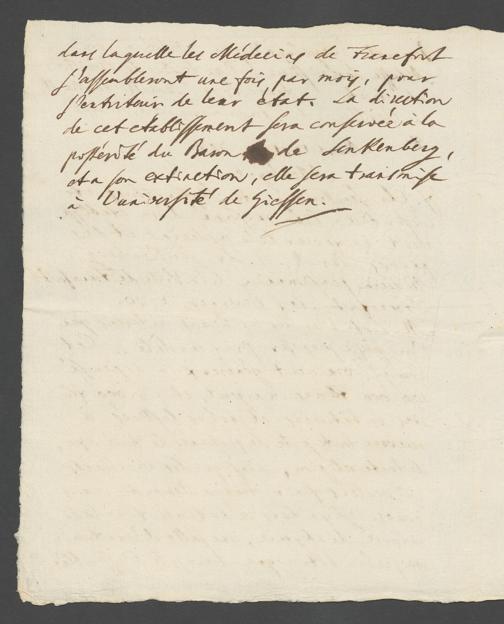 dans laquelle les Médecins de Francfort
s'assembleront une fois par mois, pour
s'entretenir de leur état. La direction
de cet établissement sera conservée à la
postérité du Baron de Senkenberg,
et a son extinction, elle sera transmise
à l'université de Giessen.